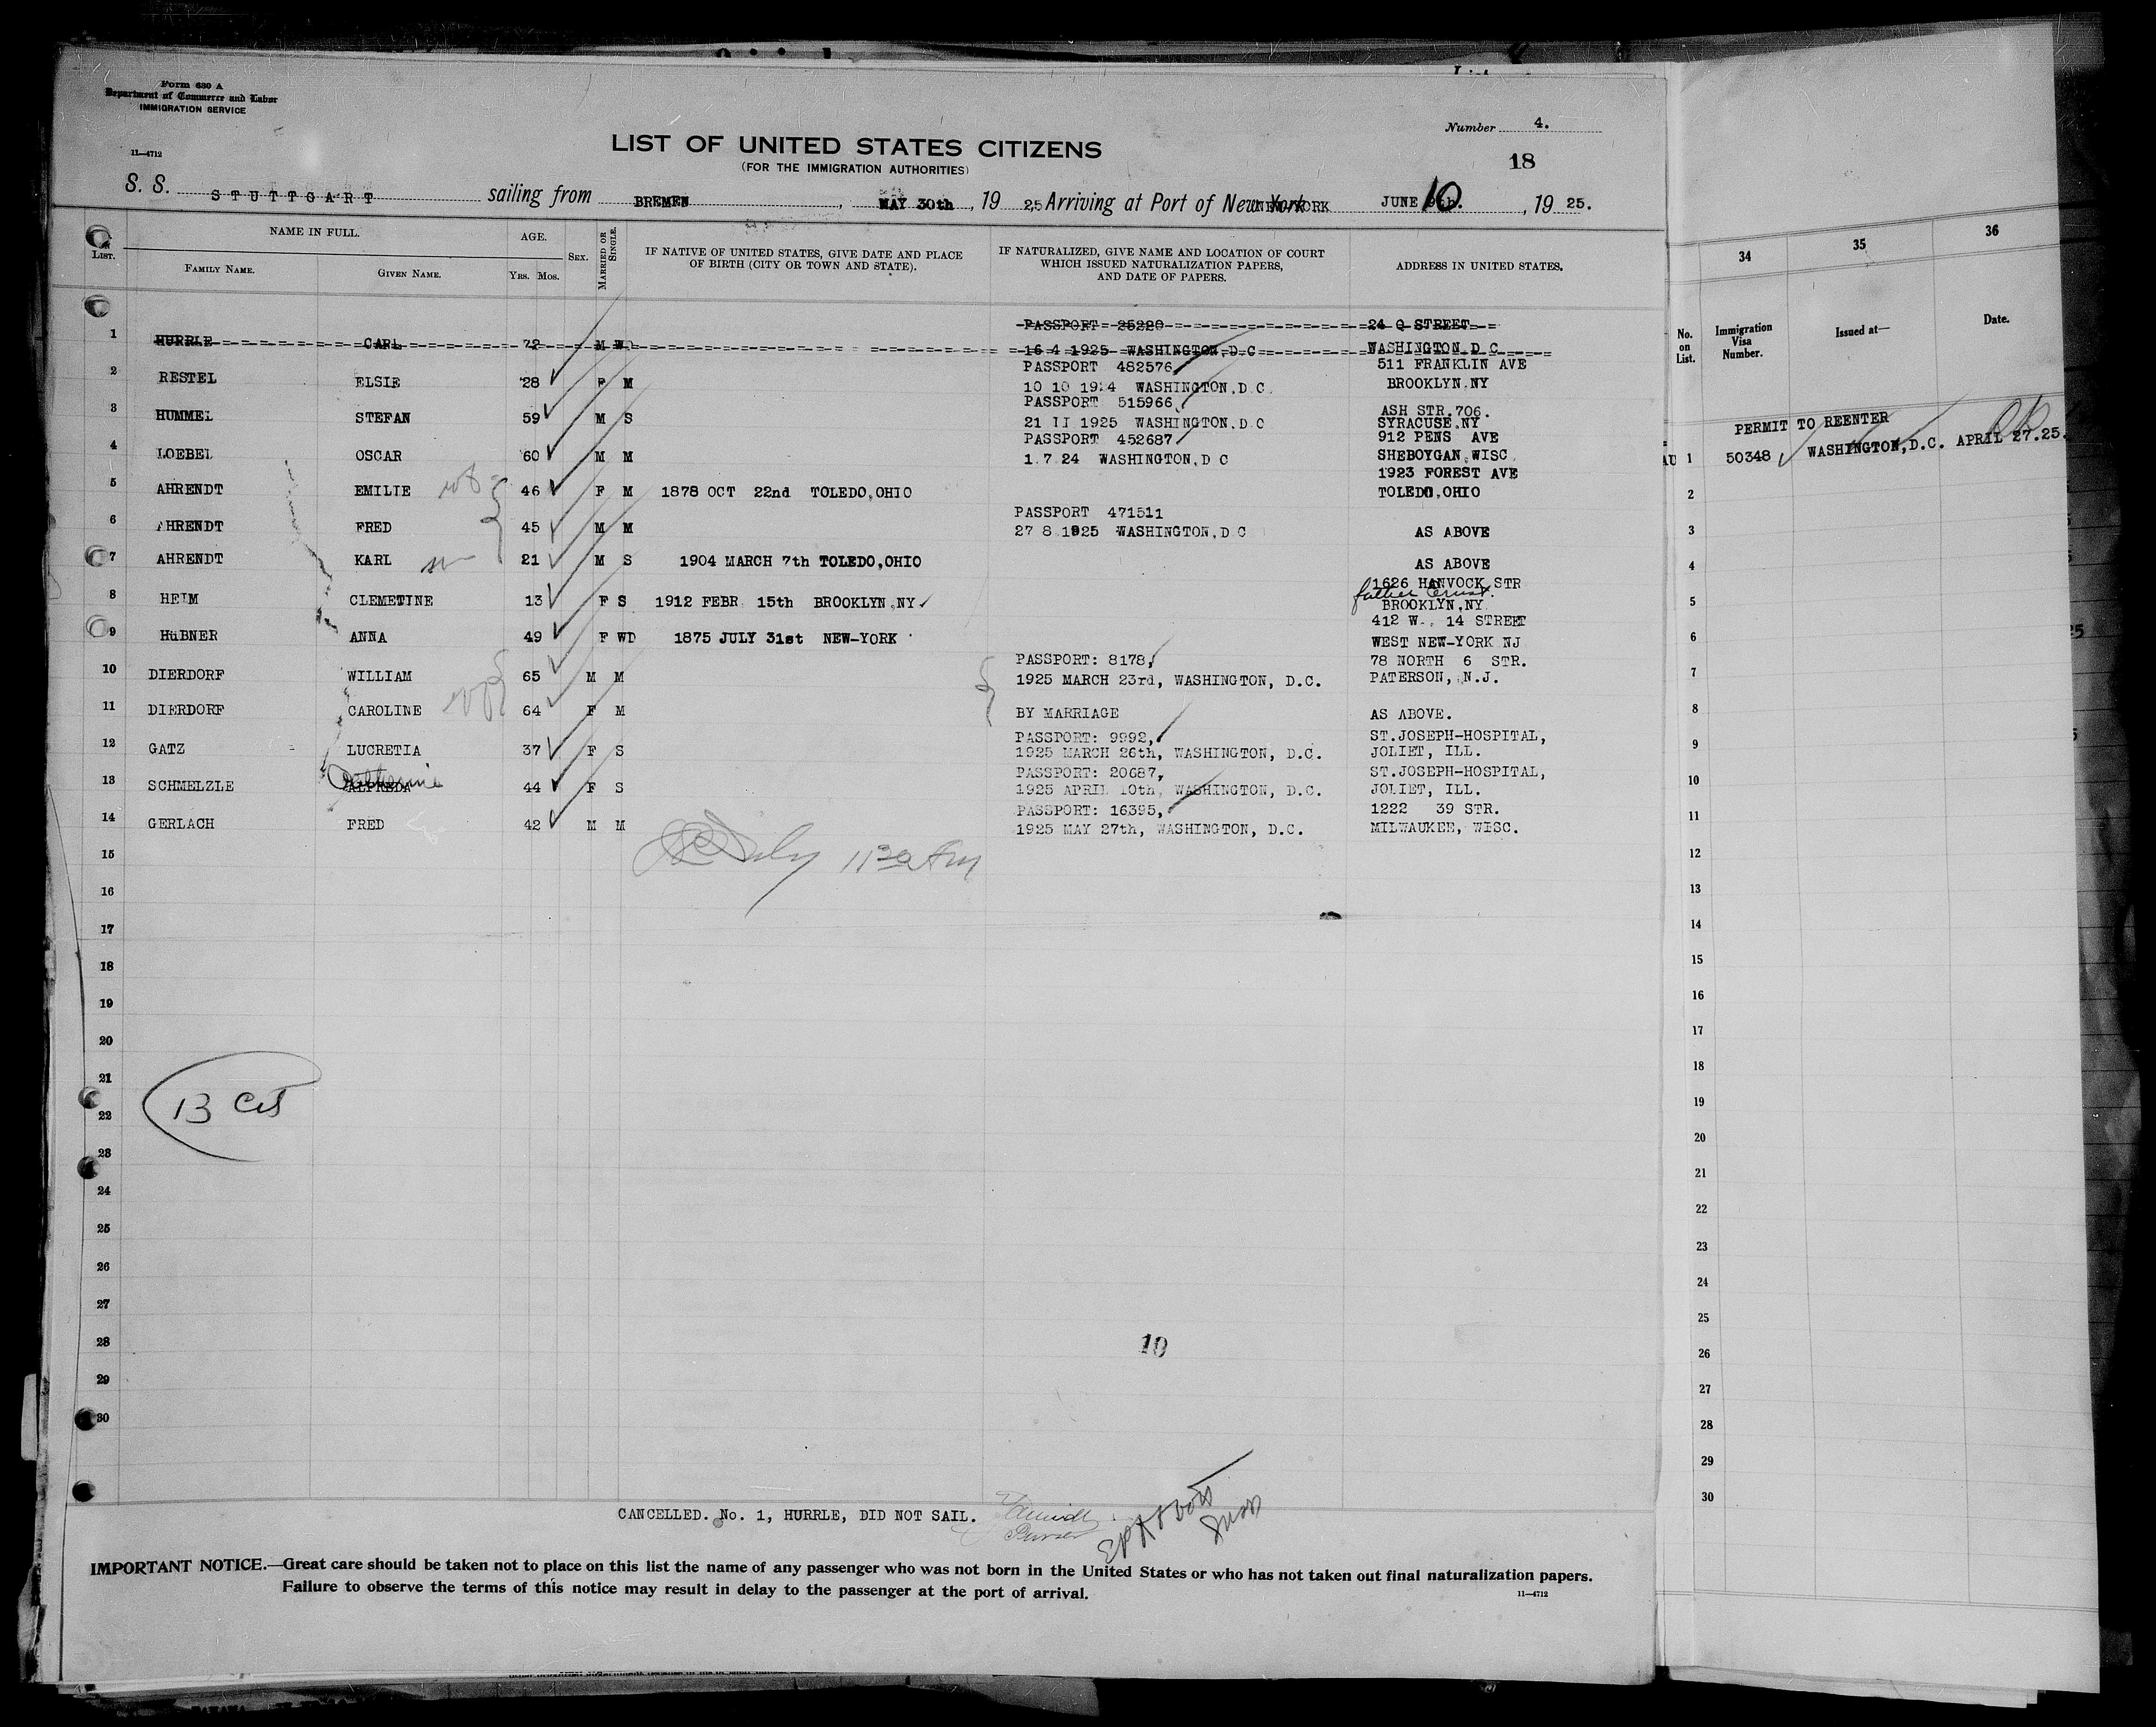 Form 630 A
Department of Commerce and Labor
IMMIGRATION SERVICE
11—4712
Number 4.
18
LIST OF UNITED STATES CITIZENS
(FOR THE IMMIGRATION AUTHORITIES)
S. S. STUTTGART sailing from BREMEN, MAY 30th, 1925, Arriving at Port of New York NEW-YORK JUNE 10, 1925.
LIST. NAME IN FULL. FAMILY NAME. GIVEN NAME. AGE. YRS. MOS. SEX. MARRIED OR SINGLE. IF NATIVE OF UNITED STATES, GIVE DATE AND PLACE OF BIRTH (CITY OR TOWN AND STATE). IF NATURALIZED, GIVE NAME AND LOCATION OF COURT WHICH ISSUED NATURALIZATION PAPERS, AND DATE OF PAPERS. ADDRESS IN UNITED STATES.
PASSPORT 25220 24 Q STREET
1 HURRLE CARL 72 M WD 16 4 1925 WASHINGTON,D.C WASHINGTON.D.C
PASSPORT 482576 511 FRANKLIN AVE
2 RESTEL ELSIE 28 F M 10 10 1924 WASHINGTON,D.C. BROOKLYN.NY
PASSPORT 515966 ASH STR.706.
3 HUMMEL STEFAN 59 M S 21 II 1925 WASHINGTON.D.C SYRACUSE.NY
PASSPORT 452687 912 PENS AVE
4 LOEBEL OSCAR 60 M M 1.7.24 WASHINGTON.D C SHEBOYGAN.WISC
1923 FOREST AVE
5 AHRENDT EMILIE 46 F M 1878 OCT 22nd TOLEDO,OHIO TOLEDO,OHIO
PASSPORT 471511
6 AHRENDT FRED 45 M M 27 8.1925 WASHINGTON,D C AS ABOVE
7 AHRENDT KARL 21 M S 1904 MARCH 7th TOLEDO,OHIO AS ABOVE
1626 HANVOCK STR
father Ernst.
8 HEIM CLEMETINE 13 F S 1912 FEBR 15th BROOKLYN.NY BROOKLYN,NY
412 W., 14 STREET
9 HüBNER ANNA 49 F WD 1875 JULY 31st NEW-YORK WEST NEW-YORK NJ
PASSPORT: 8178, 78 NORTH 6 STR.
10 DIERDORF WILLIAM 65 M M 1925 MARCH 23rd, WASHINGTON, D.C. PATERSON, N.J.
11 DIERDORF CAROLINE 64 F M BY MARRIAGE AS ABOVE.
PASSPORT: 9992, ST.JOSEPH-HOSPITAL,
12 GATZ LUCRETIA 37 F S 1925 MARCH 26th, WASHINGTON, D.C. JOLIET, ILL.
Catherine PASSPORT: 20687, ST.JOSEPH-HOSPITAL,
13 SCHMELZLE ALFREDA 44 F S 1925 APRIL 10th, WASHINGTON, D.C. JOLIET, ILL.
PASSPORT: 16395, 1222 39 STR.
14 GERLACH FRED 42 M M 1925 MAY 27th, WASHINGTON, D.C. MILWAUKEE, WISC.
15 11 30 Am
16
17
18
19
20
21
22 13 Cit
23
24
25
26
27
28 10
29
30
CANCELLED. No. 1, HURRLE, DID NOT SAIL.
Purser
IMPORTANT NOTICE.—Great care should be taken not to place on this list the name of any passenger who was not born in the United States or who has not taken out final naturalization papers.
Failure to observe the terms of this notice may result in delay to the passenger at the port of arrival.
11—4712
34 35 36
No. on List. Immigration Visa Number. Issued at— Date.
PERMIT TO REENTER
AU 1 50348 WASHINGTON,D.C. APRIL 27.25.
2
3
4
5
6
7
8
9
10
11
12
13
14
15
16
17
18
19
20
21
22
23
24
25
26
27
28
29
30